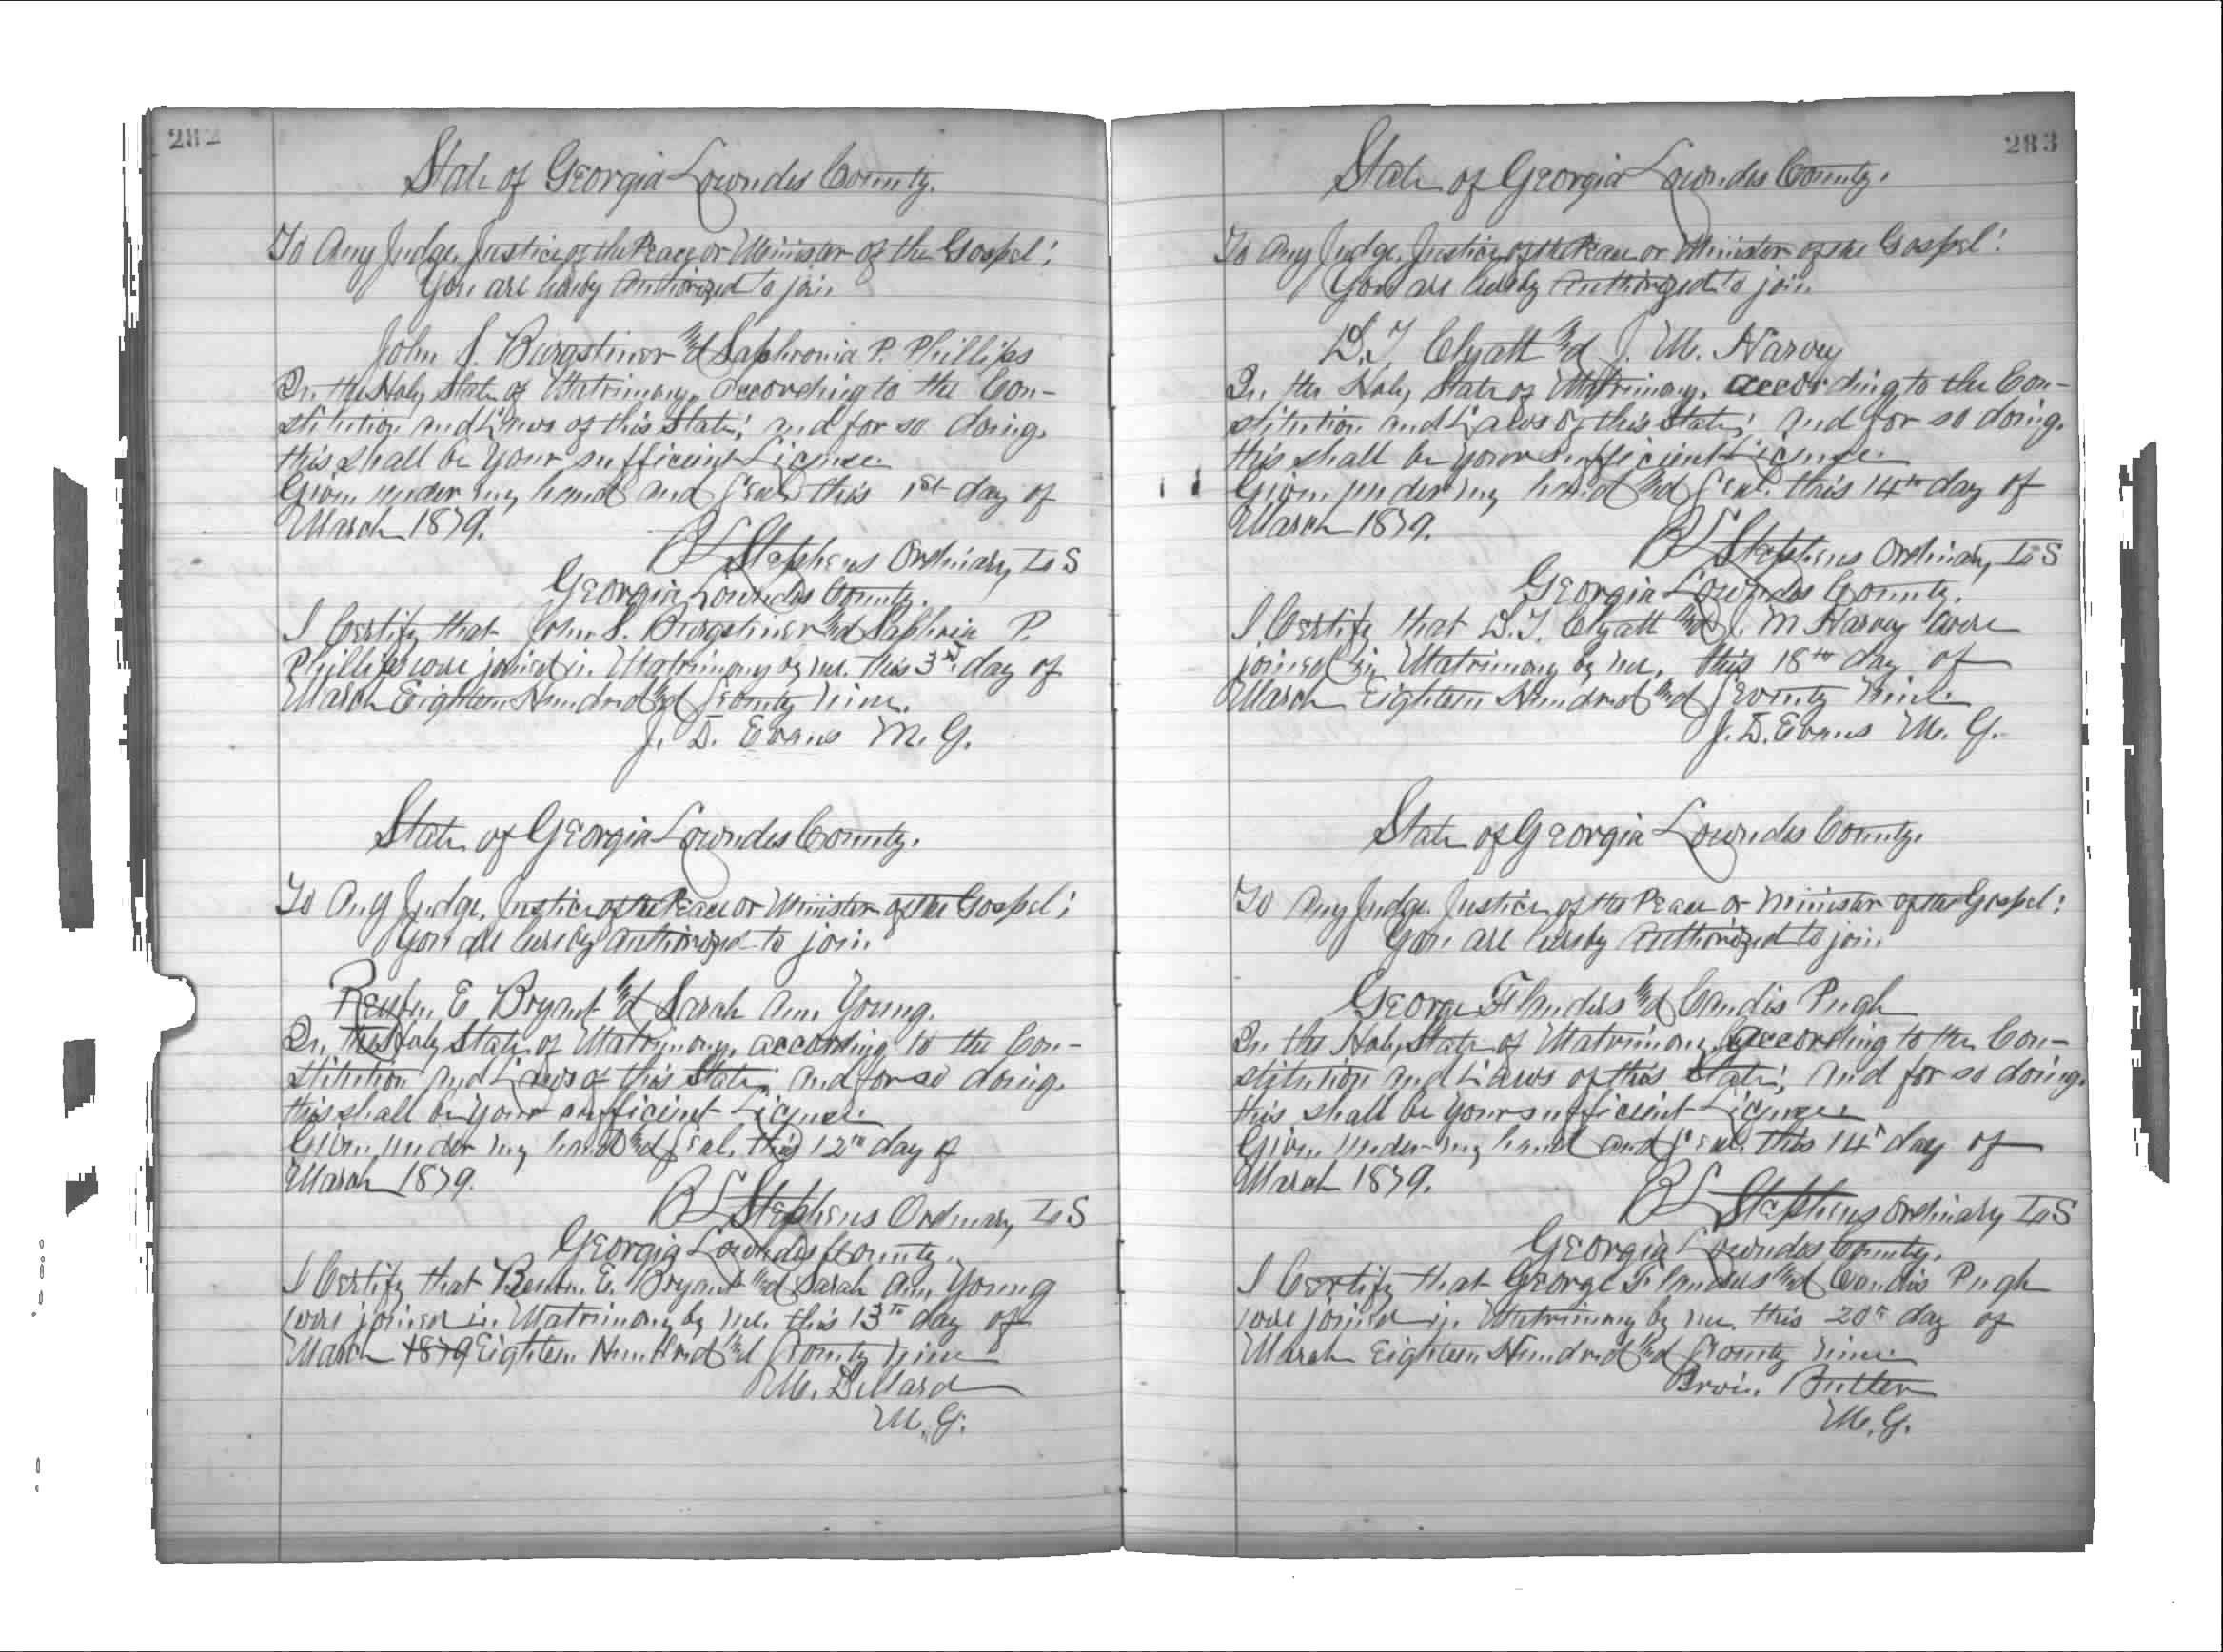 282
State of Georgia Lowndes County.
To Any Judge, Justice of the Peace or Minister of the Gospel;
You are hereby Authorized to join
John S. Burgstiner and Saphronia P. Phillips
In the Holy State of Matrimony, according to the Con-
stitution and Laws of this State; and for so doing.
this shall be your sufficient License
Given under my hand and seal this 1st day of
March 1879.
Stephens Ordinary L S
Georgia Lowndes County.
I Certify that John S. Burgstiner and P.
Phillips were joined in Matrimony by me. this 3rd day of
March Eighteen Hundred and Seventy Nine.
J. D. Evans M. G.
State of Georgia Lowndes County.
To Any Judge, Justice of the Peace or Minister of the Gospel;
You are hereby authorized to join
Reuben E Bryant and Sarah Ann Young.
In the Holy State of Matrimony, according to the Con-
stitution and Laws of this State; and for so doing.
this shall be your sufficient License
Given under my hand and seal, this 12th day of
March 1879.
Stephens Ordinary L S
Georgia Lowndes County.
I Certify that Reuben E. Bryant and Sarah Ann Young
were joined in Matrimony by me this 13th day of
March 1879 Eighteen Hundred and Seventy Nine
M. Dillard
M. G.
283
State of Georgia Lowndes County.
To Any Judge, Justice of the Peace or Minister of the Gospel:
You are hereby Authorized to join
D. T. Clyatt and J. M. Harvey
In the Holy State of Matrimony, according to the Con-
stitution and Laws of this State; and for so doing.
this shall be your sufficient License
Given under my hand and seal. this 14th day of
March 1879.
Stephens Ordinary L S
Georgia Lowndes County.
I Certify that D. T. Clyatt and J. M Harvey were
joined in Matrimony by me, this 18th day of
March Eighteen Hundred and Seventy Nine.
J. D. Evans M. G.
State of Georgia Lowndes County.
To Any Judge, Justice of the Peace or Minister of the Gospel:
You are hereby Authorized to join
George Flanders and Candis Pugh
In the Holy State of Matrimony, according to the Con-
stitution and Laws of this State; and for so doing.
this shall be your sufficient License
Given under my hand and seal. this 14 day of
March 1879.
Stephens Ordinary L S
Georgia Lowndes County.
I Certify that George Flanders and Candis Pugh
were joined in Matrimony by me. this 20th day of
March Eighteen Hundred and Seventy Nine
Butler
M. G.